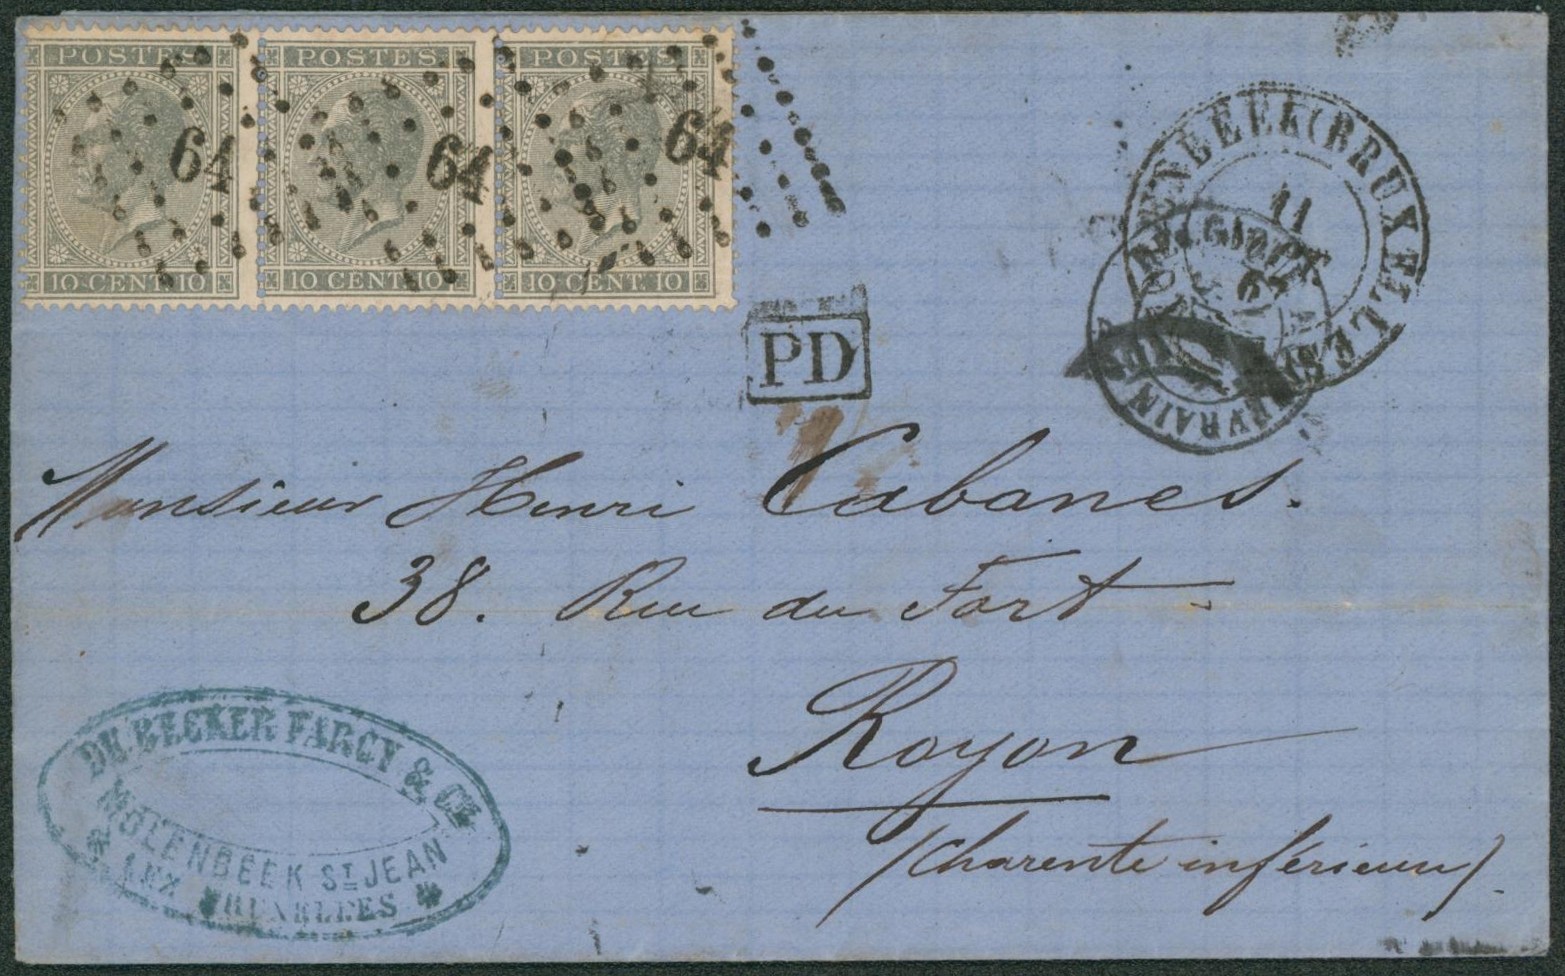 POSTES POSTES POSTES
64 64 64
10 CENT. 10 10 CENT. 10 10 CENT. 10
MOLENBEEK (BRUXELLES)
11
PD
Monsieur Henri Cabanes.
38. Rue du Fort
Royon
(Charente inférieure).
DE BECKER FARCY & CIE
MOLENBEEK ST JEAN
LEZ BRUXELLES